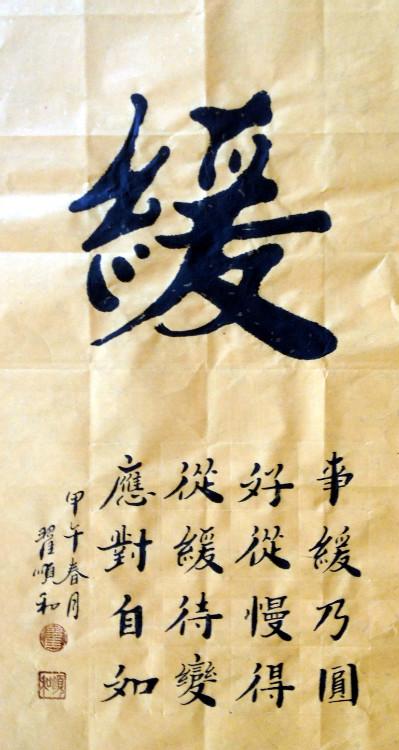 緩
事緩乃圓
好從慢得
從緩待變
應對自如
甲午春月
翟順和
順和